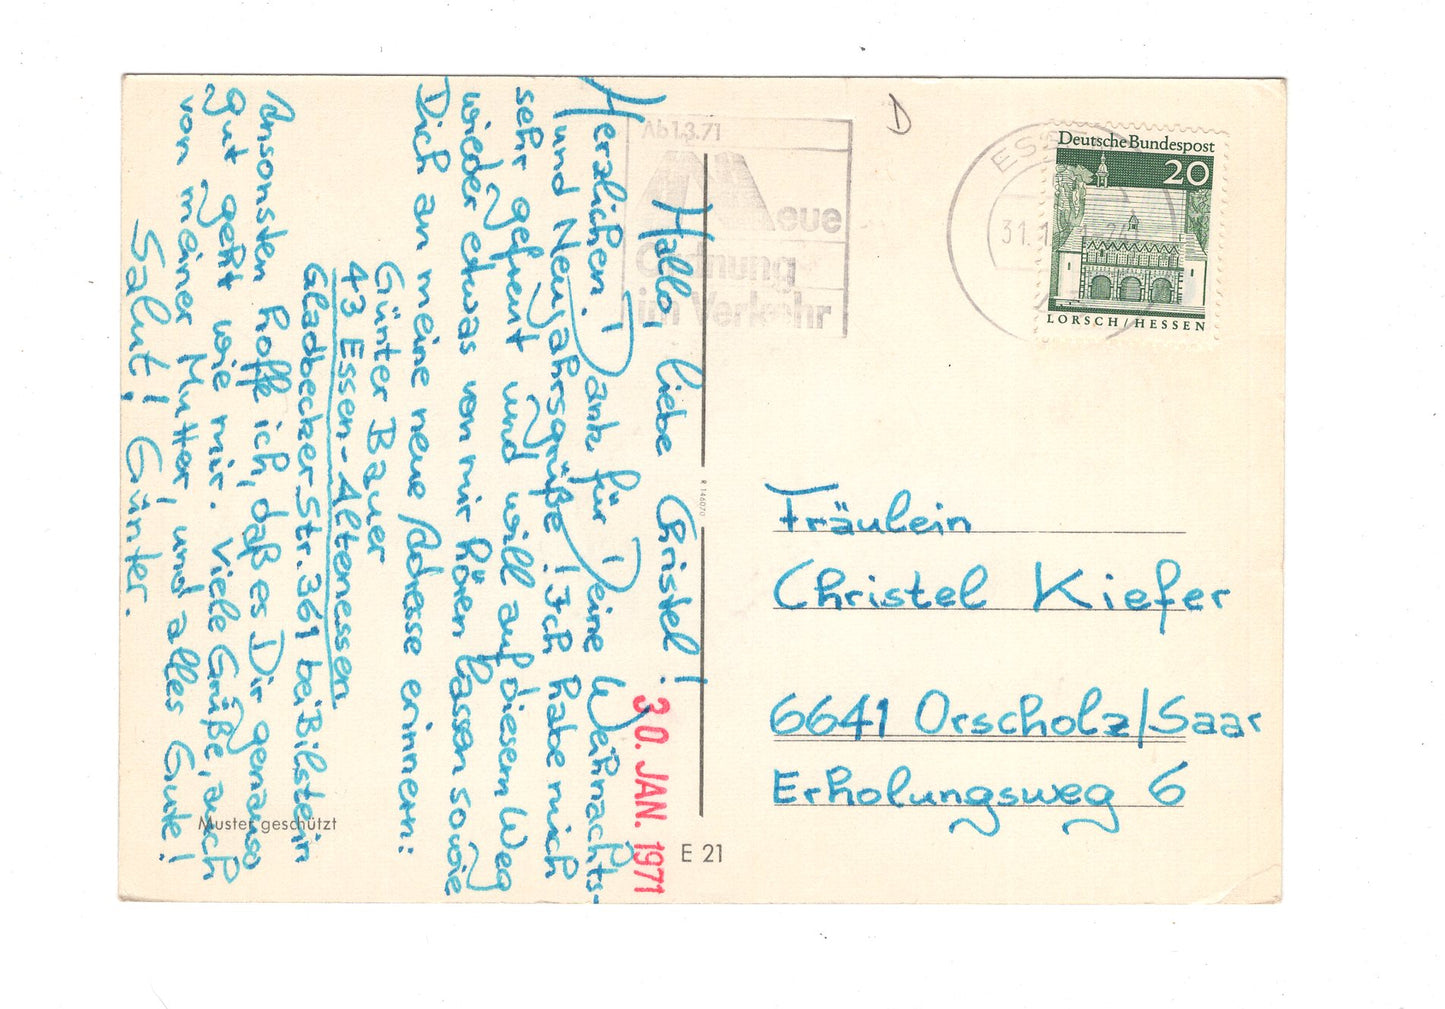 Hallo, liebe Christel!
Herzlichen Dank für Deine Weihnachts-
und Neujahrsgrüße! Ich habe mich
sehr gefreut und will auf diesem Weg
wieder etwas von mir hören lassen sowie
Dich an meine neue Adresse erinnern:
Günter Bauer
43 Essen-Altenessen
Gladbecker Str. 361 bei Bilstein
Ansonsten hoffe ich, daß es Dir genauso
gut geht wie mir. Viele Grüße, auch
von meiner Mutter, und alles Gute!
Salut! Günter.
Muster geschützt
30. JAN. 1971
E 21
R 146070
Ab 1.3.71
Neue
Ordnung
im Verkehr
D
Deutsche Bundespost
20
LORSCH/HESSEN
Fräulein
Christel Kiefer
6641 Orscholz/Saar
Erholungsweg 6